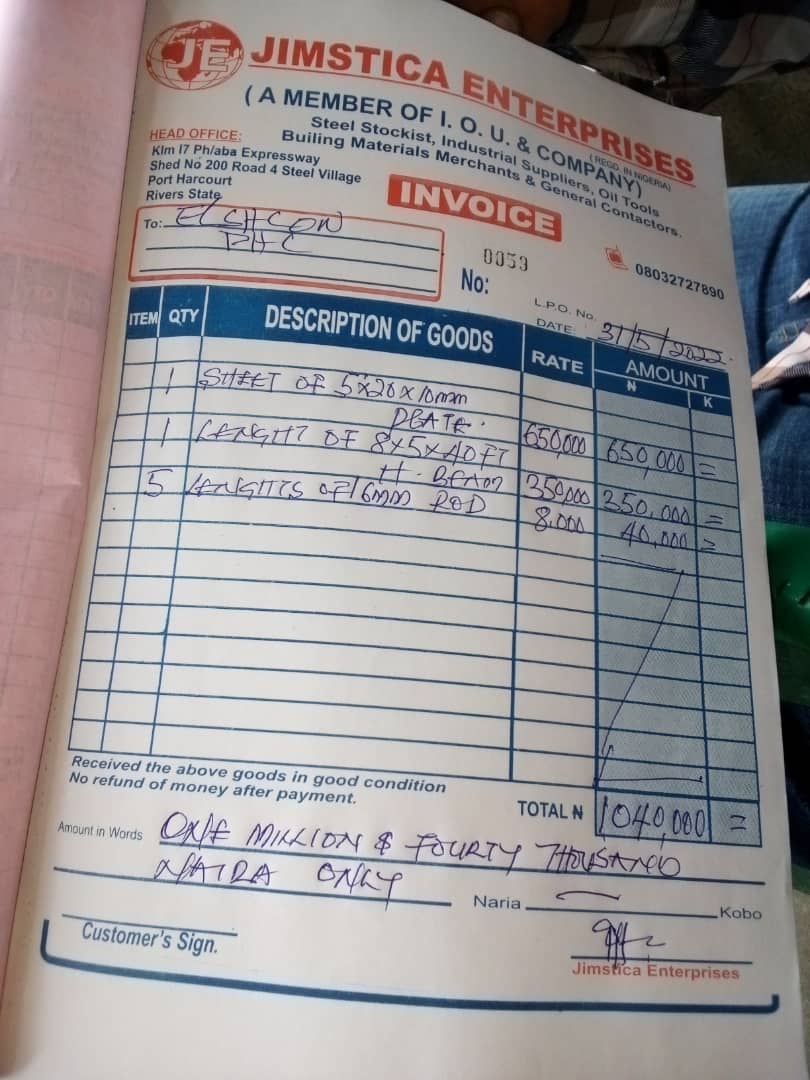 JE JIMSTICA ENTERPRISES
(REGD. IN NIGERIA)
(A MEMBER OF I. O. U. & COMPANY)
Steel Stockist, Industrial Suppliers, Oil Tools
Builing Materials Merchants & General Contactors.
HEAD OFFICE:
Klm 17 Ph/aba Expressway
Shed No 200 Road 4 Steel Village
Port Harcourt
Rivers State
INVOICE
08032727890
To: ELCHCON
PHC
0059
No:
L.P.O. No.
DATE: 31/5/2022.
ITEM QTY DESCRIPTION OF GOODS RATE AMOUNT
N K
1 SHEET OF 5x20x10mm
PLATE. 650,000 650,000 =
1 LENGHT OF 8x5x40FT
H. BEAM 350,000 350,000 =
5 LENGHTS OF 16mm ROD 8,000 40,000 =
Received the above goods in good condition
No refund of money after payment.
TOTAL N 1040,000 =
Amount in Words ONE MILLION & FOURTY THOUSAND
NAIRA ONLY
Naria Kobo
Customer's Sign.
Jimstica Enterprises